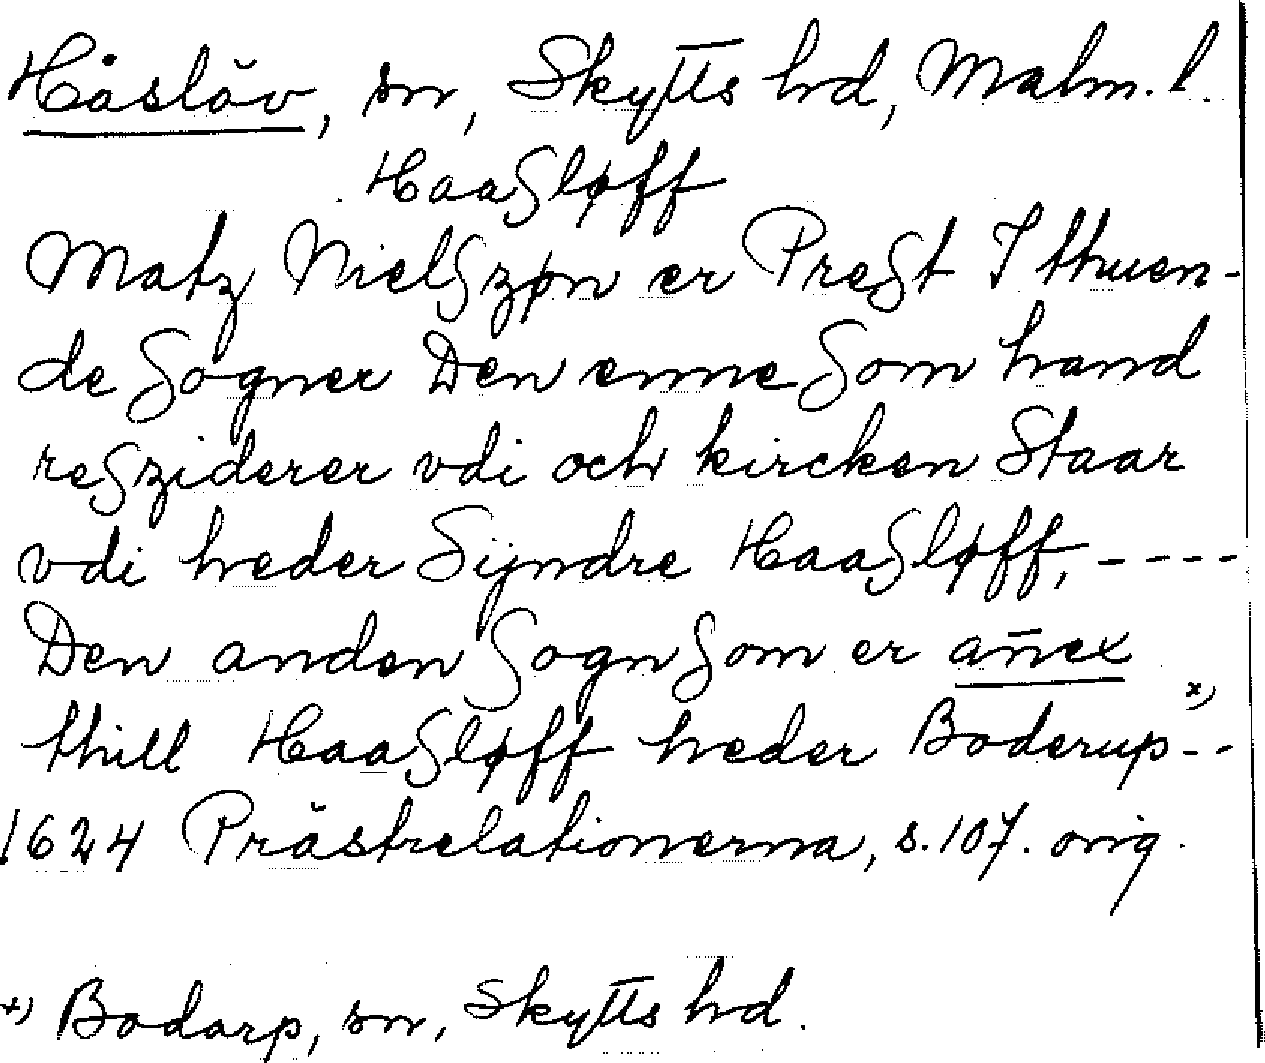 Håslöv, sn, Skytts hd, Malm. l.
Haaſløff
Matz Nielſzøn er Preſt I thuen-
de ſogner Den enne ſom hand
reſziderer vdi och kircken Staar
vdi heder Sÿndre Haaſløff, ----
Den anden ſogn ſom er an̄ex
thill Haaſløff heder Boderup *) --
1624 Prästrelationerna, s. 107. orig.
*) Bodarp, sn, Skytts hd.